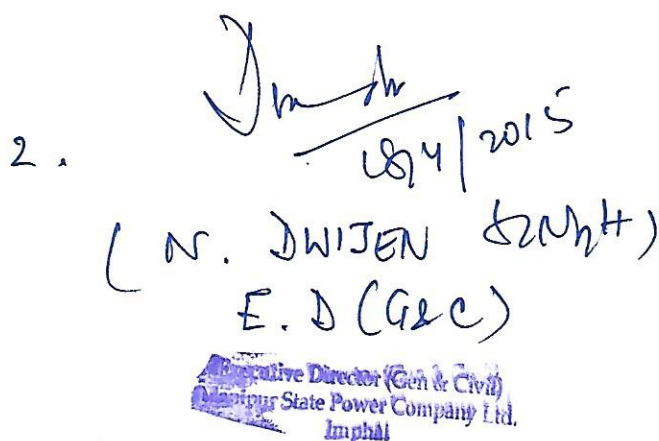 2.
18/4/2015
(N. DWIJEN SINGH)
E.D (G&C)
Executive Director (Gen & Civil)
Manipur State Power Company Ltd.
Imphal